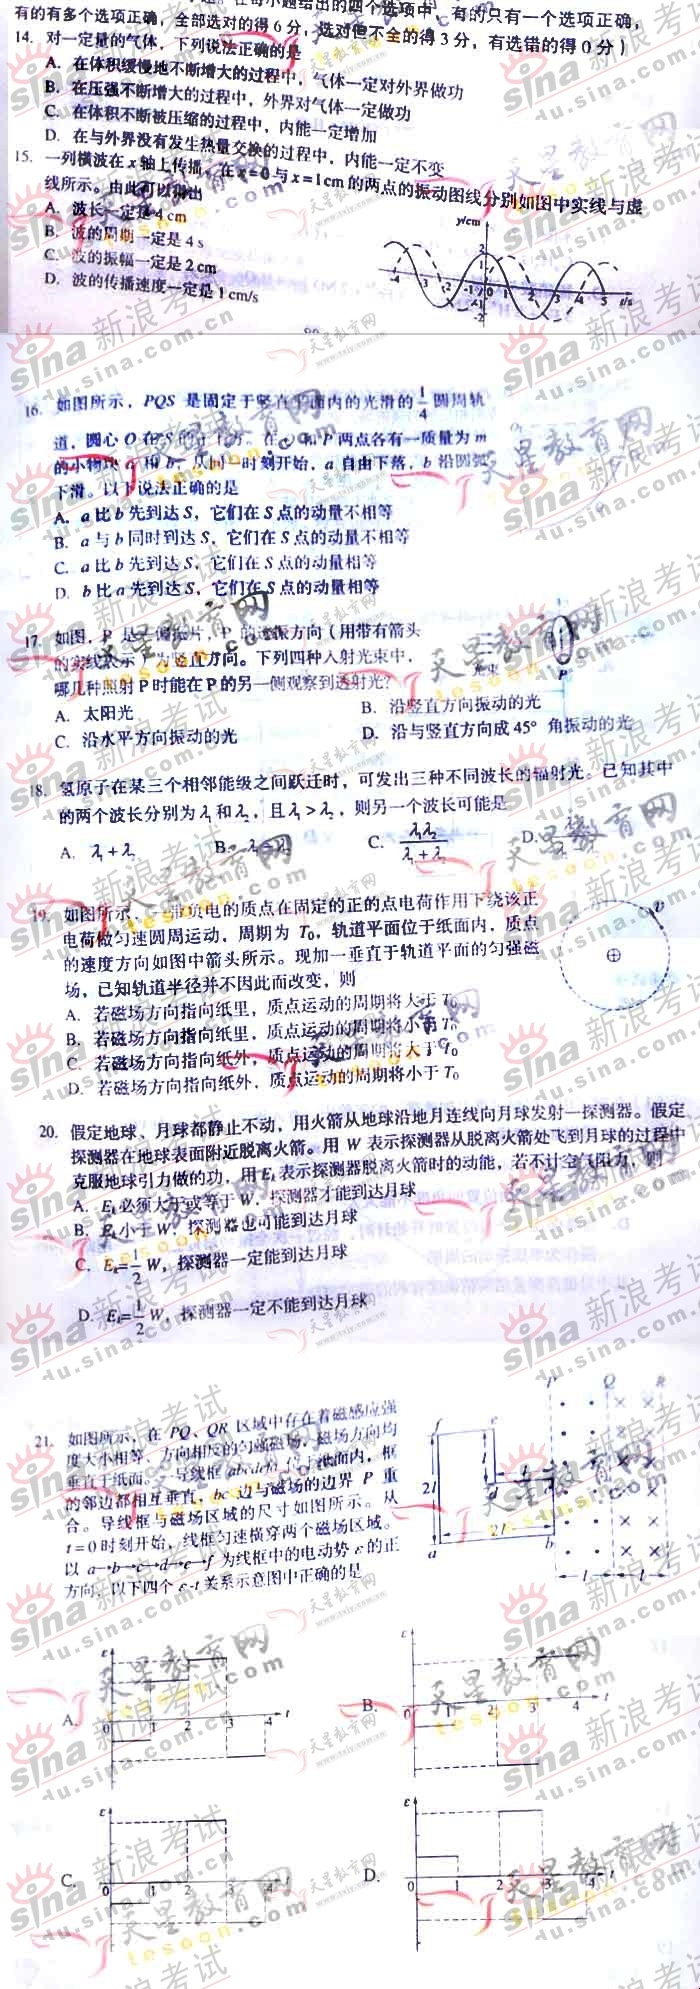 有的有多个选项正确，全部选对的得6分，选对但不全的得3分，有选错的得0分）
14. 对一定量的气体，下列说法正确的是
A. 在体积缓慢地不断增大的过程中，气体一定对外界做功
B. 在压强不断增大的过程中，外界对气体一定做功
C. 在体积不断被压缩的过程中，内能一定增加
D. 在与外界没有发生热量交换的过程中，内能一定不变
15. 一列横波在x轴上传播，在x=0与x=1cm的两点的振动图线分别如图中实线与虚
线所示。由此可以得出
A. 波长一定是4cm
B. 波的周期一定是4s
C. 波的振幅一定是2cm
D. 波的传播速度一定是1cm/s
y/cm
t/s
16. 如图所示，PQS 是固定于竖直平面内的光滑的 1/4 圆周轨
道，圆心O在S的正上方。在O和P两点各有一质量为m
的小物块a和b，从同一时刻开始，a自由下落，b沿圆弧
下滑。以下说法正确的是
A. a比b先到达S，它们在S点的动量不相等
B. a与b同时到达S，它们在S点的动量不相等
C. a比b先到达S，它们在S点的动量相等
D. b比a先到达S，它们在S点的动量相等
17. 如图，P是一偏振片，P的透振方向（用带有箭头
的实线表示）为竖直方向。下列四种入射光束中，
哪几种照射P时能在P的另一侧观察到透射光？
光束
P
A. 太阳光
B. 沿竖直方向振动的光
C. 沿水平方向振动的光
D. 沿与竖直方向成45° 角振动的光
18. 氢原子在某三个相邻能级之间跃迁时，可发出三种不同波长的辐射光。已知其中
的两个波长分别为λ₁和λ₂，且λ₁>λ₂，则另一个波长可能是
A. λ₁+λ₂
B. λ₁-λ₂
C. λ₁λ₂/(λ₁+λ₂)
D.
19. 如图所示，一带负电的质点在固定的正的点电荷作用下绕该正
电荷做匀速圆周运动，周期为 T₀，轨道平面位于纸面内，质点
的速度方向如图中箭头所示。现加一垂直于轨道平面的匀强磁
场，已知轨道半径并不因此而改变，则
A. 若磁场方向指向纸里，质点运动的周期将大于T₀
B. 若磁场方向指向纸里，质点运动的周期将小于T₀
C. 若磁场方向指向纸外，质点运动的周期将大于T₀
D. 若磁场方向指向纸外，质点运动的周期将小于T₀
v
20. 假定地球、月球都静止不动，用火箭从地球沿地月连线向月球发射一探测器。假定
探测器在地球表面附近脱离火箭。用 W 表示探测器从脱离火箭处飞到月球的过程中
克服地球引力做的功，用Eₖ表示探测器脱离火箭时的动能，若不计空气阻力，则
A. Eₖ必须大于或等于W，探测器才能到达月球
B. Eₖ小于W，探测器也可能到达月球
C. Eₖ=1/2 W，探测器一定能到达月球
D. Eₖ=1/2 W，探测器一定不能到达月球
21. 如图所示，在 PQ、QR 区域中存在着磁感应强
度大小相等、方向相反的匀强磁场，磁场方向均
垂直于纸面。一导线框abcdef位于纸面内，框
的邻边都相互垂直，bc 边与磁场的边界 P 重
合。导线框与磁场区域的尺寸如图所示。从
t=0时刻开始，线框匀速横穿两个磁场区域。
以 a→b→c→d→e→f 为线框中的电动势ε的正
方向，以下四个ε-t关系示意图中正确的是
A.
B.
C.
D.
新浪考试
sina
edu.sina.com.cn
天星教育网
tesoon.com
www.txjy.com.cn